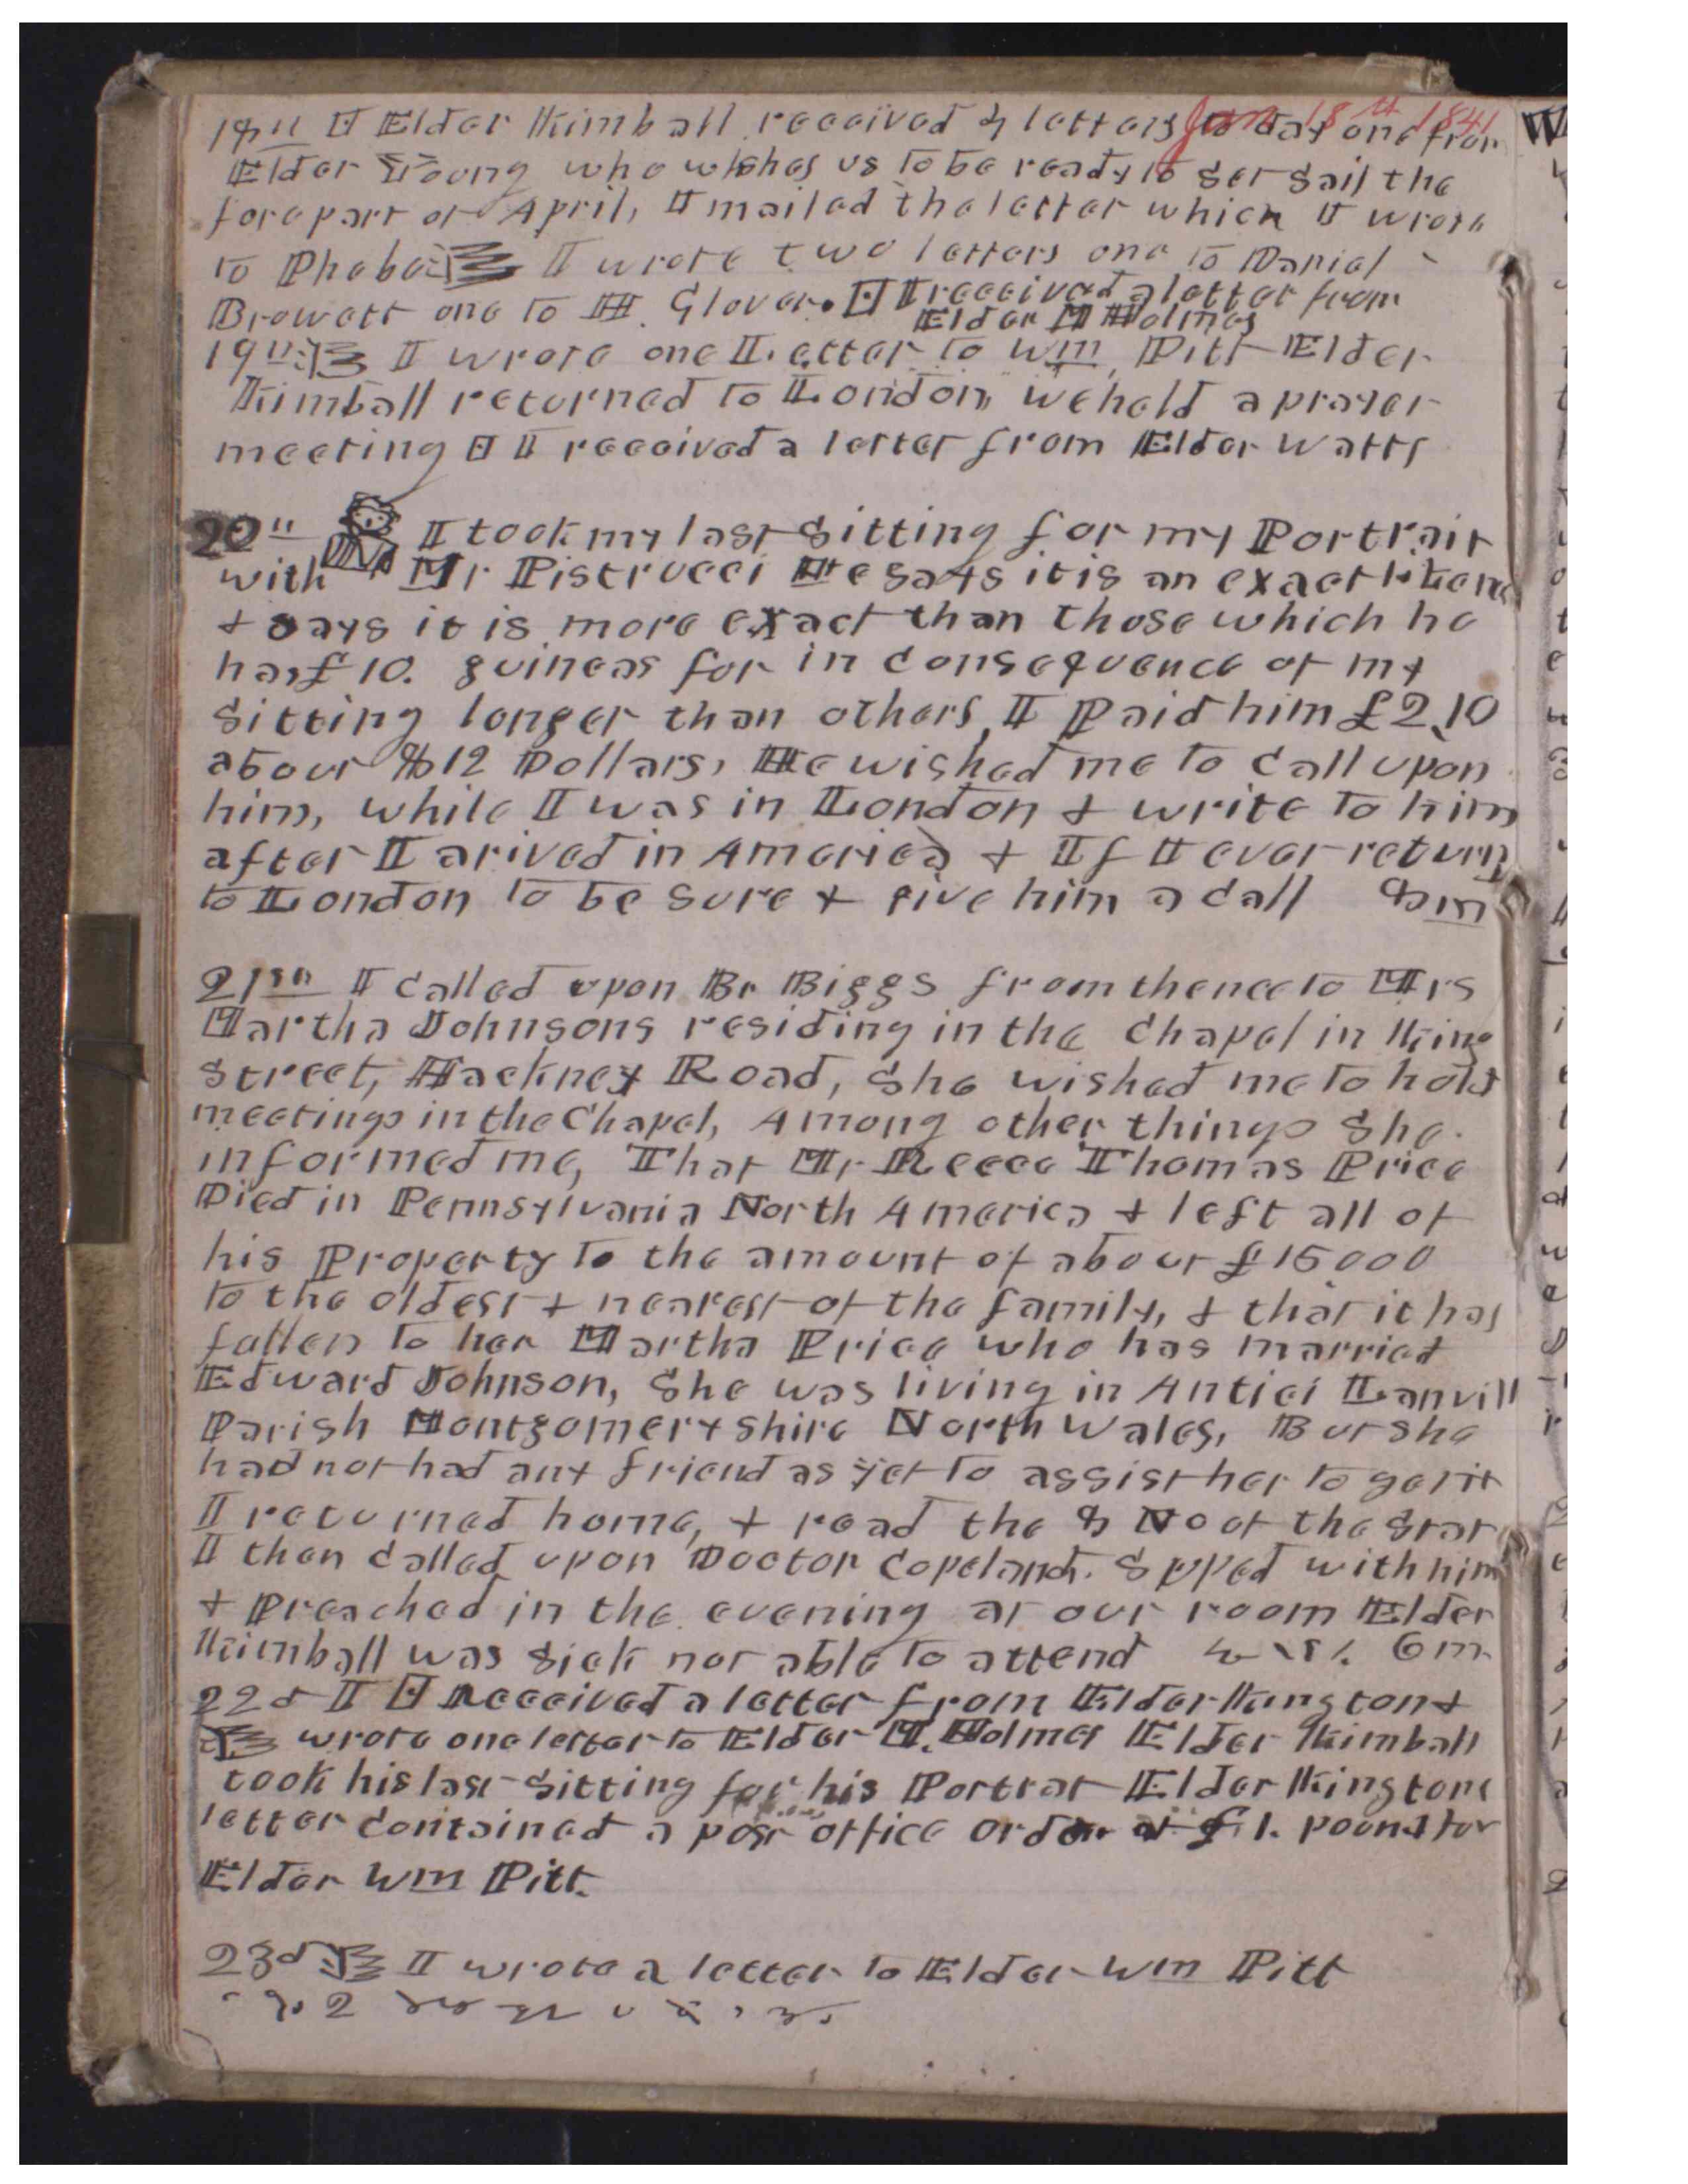 Jan 18th 1841
18th Elder Kimball received 4 letters to day one from
Elder Young who wishes us to be ready to set sail the
forepart of April, I mailed the letter which I wrote
to Phebe I wrote two letters one to Daniel
Browett one to H. Glover. I received a letter from
Elder M Holmes
19th I wrote one Letter to Wm Pitt Elder
Kimball returned to London, we held a prayer
meeting I received a letter from Elder Watts
20th I took my last Sitting for my Portrait
with Mr Pistrucci He says it is an exact
& says it is more exact than those which he
has £10. guineas for in consequence of my
sitting longer than others, I Paid him £2,10
about $12 Dollars, He wished me to call upon
him, while I was in London & write to him
after I arived in America & If I ever return
to London to be sure & give him a call 8 m
21st I called upon Br Biggs from thence to Mrs
Martha Johnsons residing in the Chapel in King
Street, Hackney Road, She wished me to hold
meetings in the Chapel, Among other things She
informed me, That Mr Reece Thomas Price
Died in Pennsylvania North America & left all of
his Property to the amount of about £15000
to the oldest & nearest of the family, & that it has
fallen to her Martha Price who has married
Edward Johnson, She was living in Antici Lanvill
Parish Montgomeryshire North Wales, But she
had not had any friend as yet to assist her to get it
I returned home, & read the 8 No of the Star
I then called upon Doctor Copeland. Supped with him
& Preached in the evening at our room Elder
Kimball was sick not able to attend 6 m
22d I Received a letter from Elder Kington &
wrote one letter to Elder M. Holmes Elder Kimball
took his last Sitting for his Portrat Elder Kingtons
letter contained a post office order of £1. pound for
Elder Wm Pitt.
23d I wrote a letter to Elder Wm Pitt